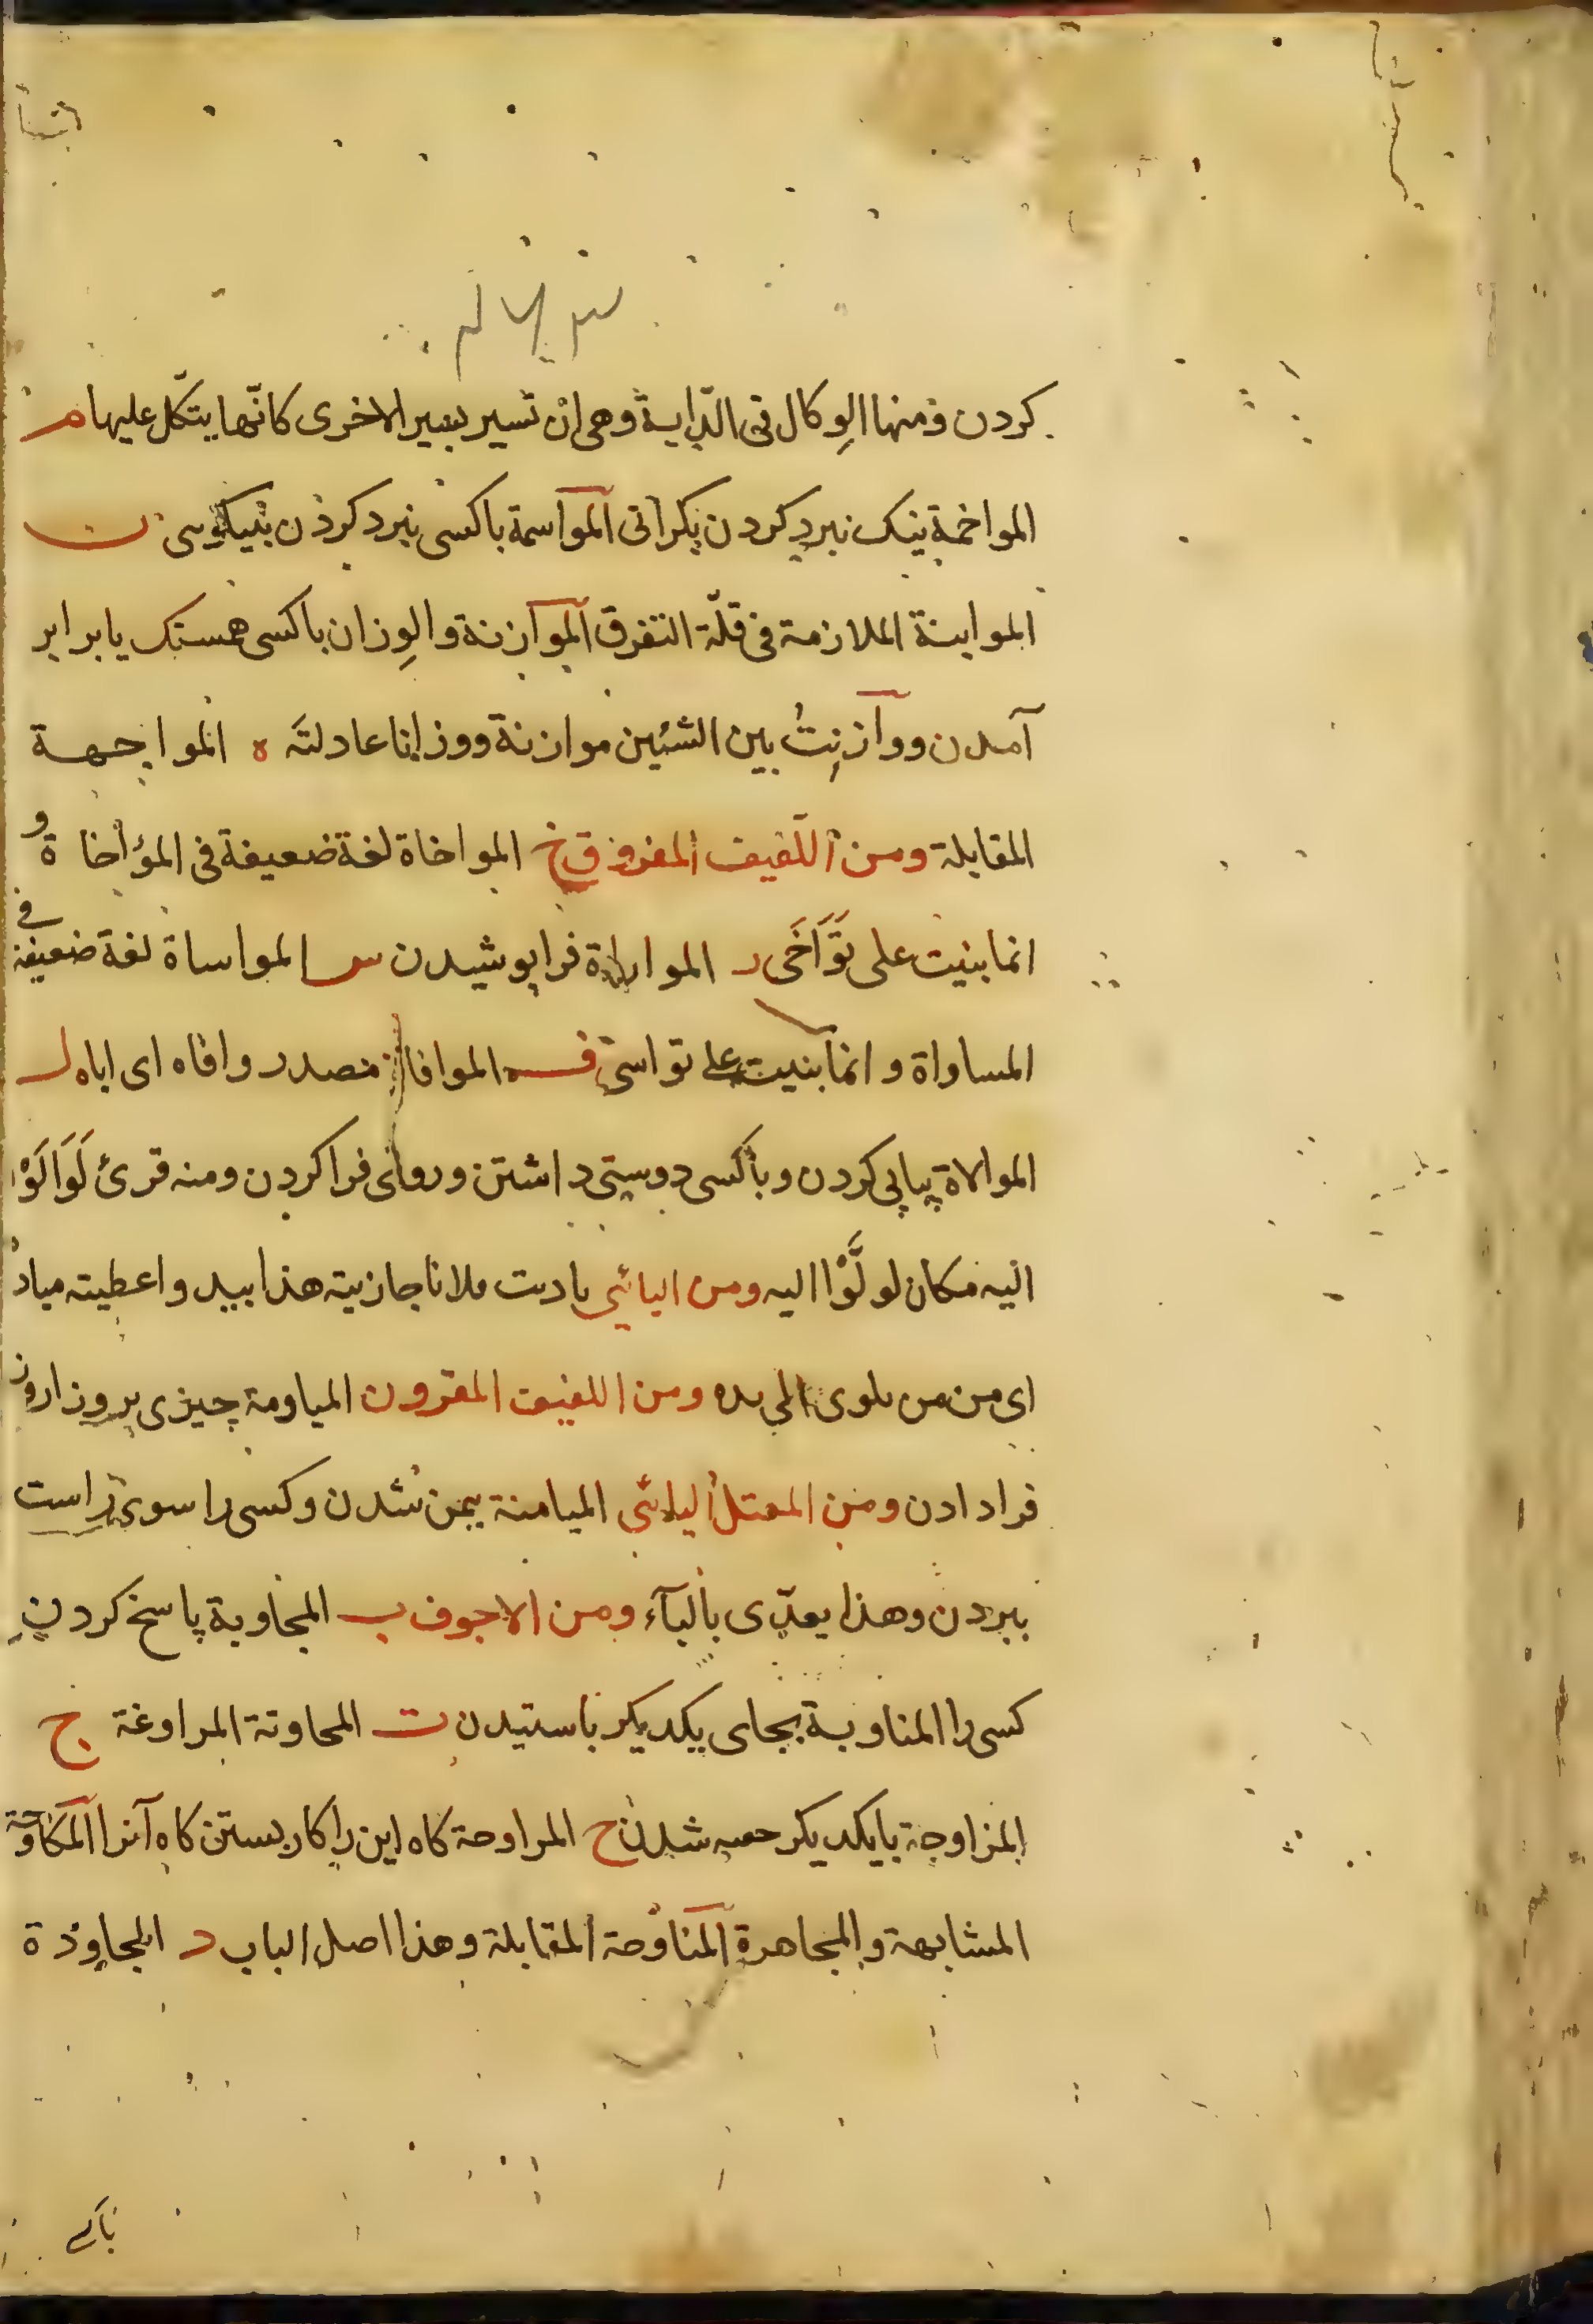 كردن ومنها الوِكال فى الدّابة وهى ان تسير بسير الاخرى كانّها يتكل عليها م
المواخمة نبرد كردن بكرانى المواسمة باكسى نبرد كردن بنيكويى ن
المواينة الملازمة فى قلّة التفرق الموازنة والوِزان باكسى همسنك يا برابر
آمدن ووازنتُ بين الشيئين موازنة ووزانا عادلته ه المواجهة
المقابلة ومن اللفيف المفروق خ المواخاة لغة ضعيفة فى المؤاخاة و
انما بنيت على تَوَاخَى ر المواراة فرا پوشيدن س المواساة لغة ضعيفة فى
المساواة وانما بنيت على تواسى ف الموافاة مصدر وافاه اى اتاه ل
الموالاة پياپى كردن وباكسى دوستى داشتن وروى فرا كردن ومنه قرئ لَوَالَوْا
اليه مكان لولَّوْا اليه ومن اليائى ياديت فلانا جازيته هذا بيد واعطيته مياداة
اى من يدى الى يده ومن اللفيف المقرون المياومة چيزى بروز اروز
فرا دادن ومن المعتل اليائى الميامنة بيمن شدن وكسى را سوى راست
ببردن وهذا يعدّى بالبآء ومن الاجوف ب المجاوبة پاسخ كردن
كسى را المناوبة بجاى يكديكر باستيدن ت المحاوتة المراوغة ج
المزاوجة با يكديكر جفت شدن ح المراوحة كاه اين را كار بستن كاه آنرا المكاوحة
المشابهة والمجاهرة المناوحة المقابلة وهذا اصل الباب د المجاودة
باكى